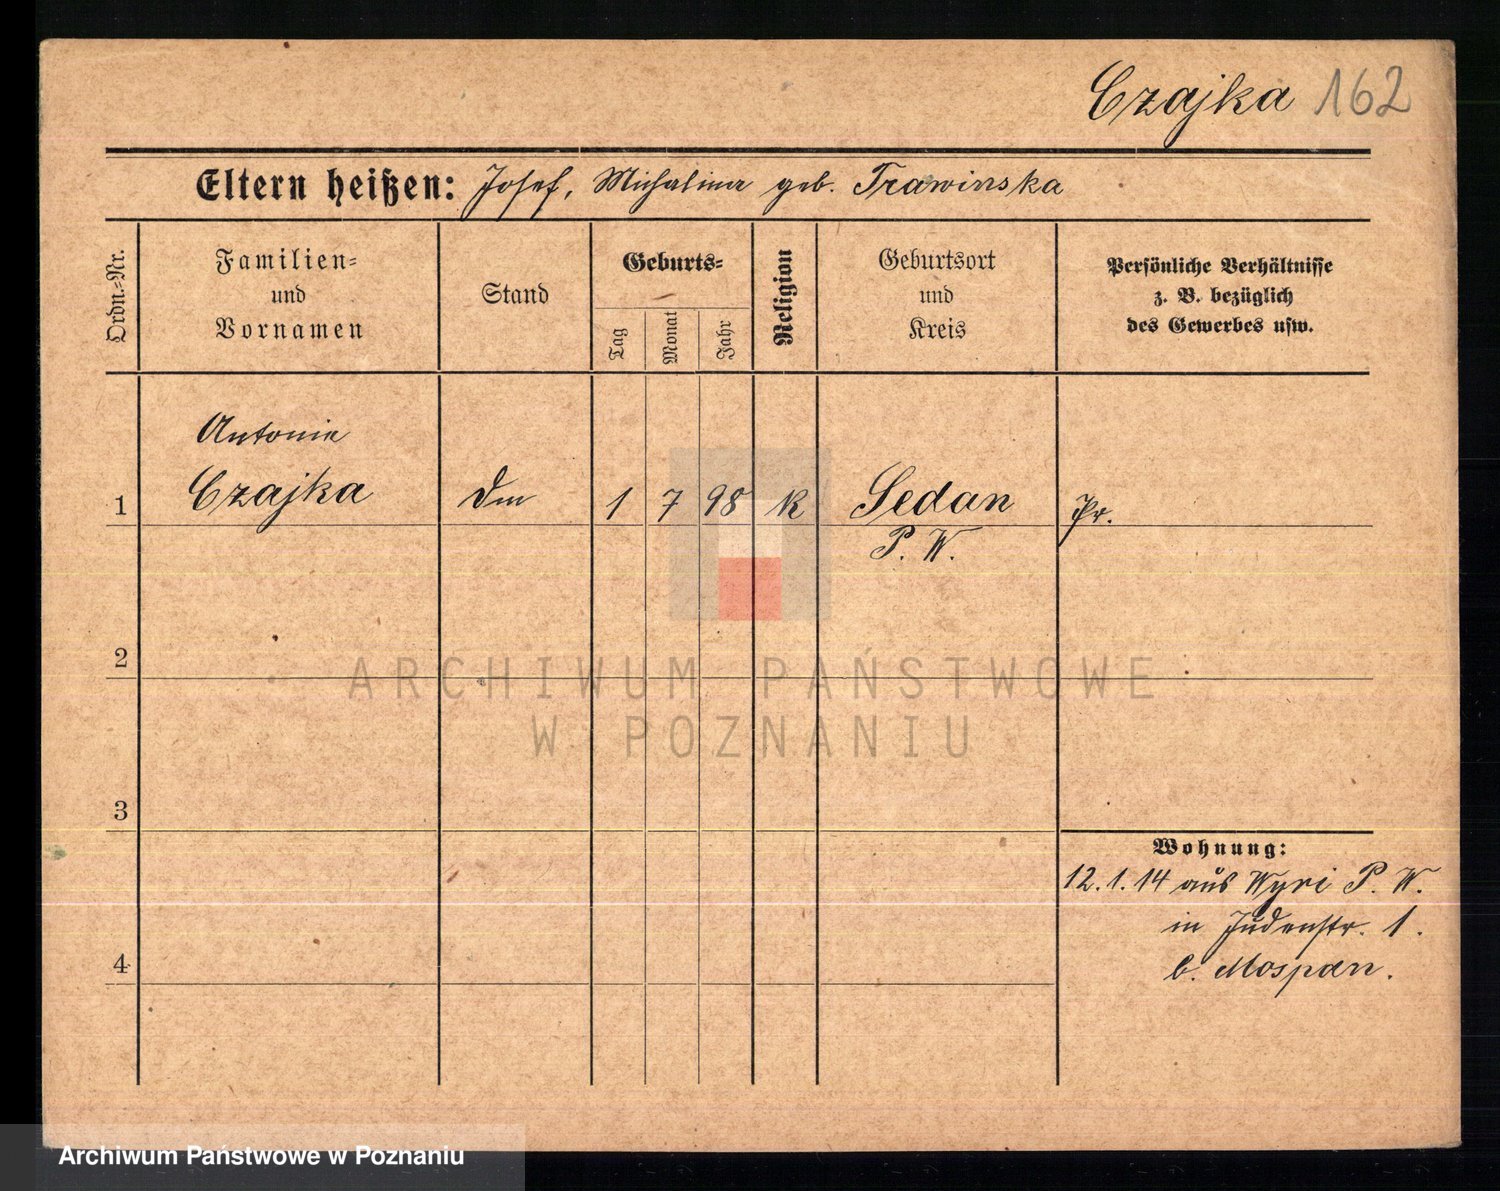 Czajka 162
Eltern heißen: Josef, Michalina geb. Trawinska
Ordn.-Nr.
Familien-
und
Vornamen
Stand
Geburts-
Tag
Monat
Jahr
Religion
Geburtsort
und
Kreis
Persönliche Verhältnisse
z. B. bezüglich
des Gewerbes usw.
Antonie
1 Czajka 1 7 98 K Sedan Pr.
P. W.
2
3
Wohnung:
12.1.14 aus Wyri P. W.
in Judenstr. 1.
b. Mospan.
4
ARCHIWUM PAŃSTWOWE
W POZNANIU
Archiwum Państwowe w Poznaniu